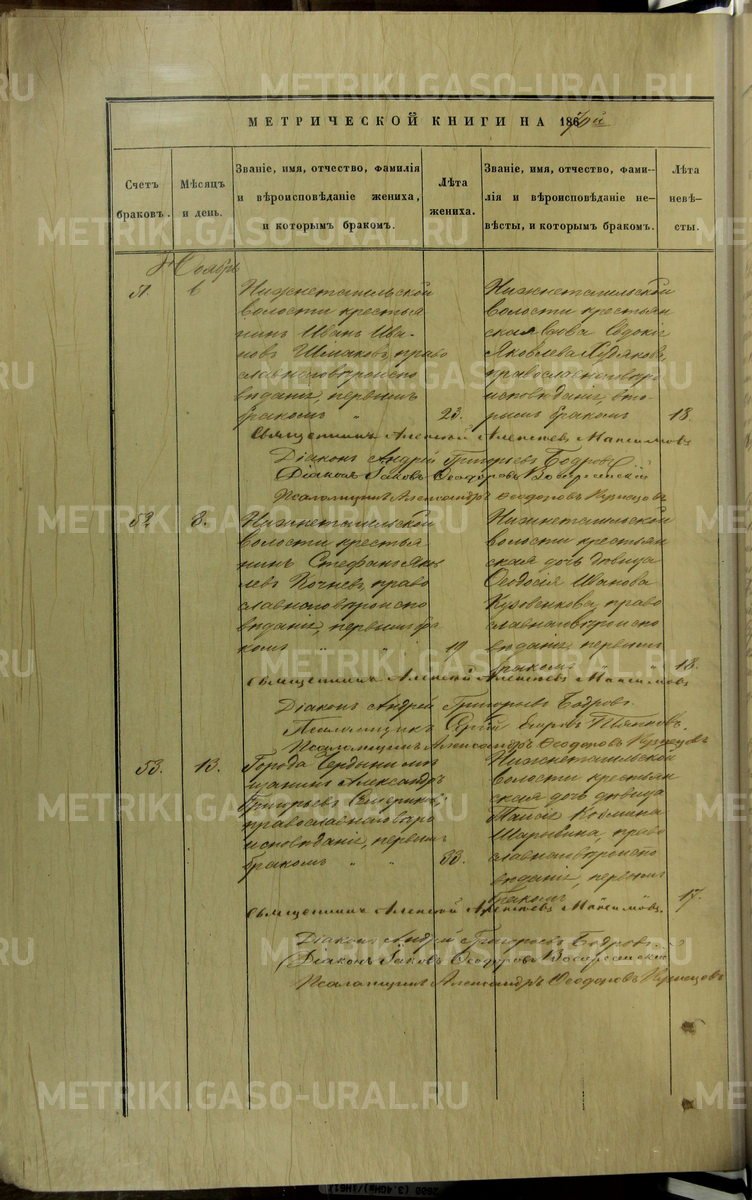 METRIKI.GASO-URAL.RU
МЕТРИЧЕСКОЙ КНИГИ НА 186
Счетъ браковъ.
Мѣсяцъ и день.
Званіе, имя, отчество, фамилія
и вѣроисповѣданіе жениха,
и которымъ бракомъ.
Лѣта жениха.
Званіе, имя, отчество, фами-
лія и вѣроисповѣданіе не-
вѣсты, и которымъ бракомъ.
Лѣта невѣ-
сты.
Ноябрь
51.
6
Нижнетагильской
волости крестья
нинъ Иванъ Ива-
новъ Шмаковъ, право
славнаго вѣроиспо
вѣданія, первымъ
бракомъ "
23.
Нижнетагильской
волости крестьян
ская вдова Евдокія
Яковлева Худякова,
православнаго вѣро
исповѣданія, вто-
рымъ бракомъ
18.
Священникъ Алексѣй Алексѣевъ Максимовъ
Діаконъ Андрей Григорьевъ Бодровъ
Діаконъ Іаковъ Ѳеодоровъ
Псаломщикъ Александръ Ѳеодоровъ Кузнецовъ
52.
8.
Нижнетагильской
волости крестья
нинъ Стефанъ Яков
левъ Кочневъ, право
славнаго вѣроиспо
вѣданія, первымъ бра
комъ " "
19
Нижнетагильской
волости крестьян
ская дочь дѣвица
Ѳеодосія Иванова
право
славнаго вѣроиспо
вѣданія, первымъ
бракомъ " "
18.
Священникъ Алексѣй Алексѣевъ Максимовъ
Діаконъ Андрей Григорьевъ Бодровъ.
Псаломщикъ Сергѣй
Псаломщикъ Александръ Ѳеодоровъ Кузнецовъ
53.
13.
Города Чердыни мѣ
щанинъ Александръ
Григорьевъ
православнаго вѣро
исповѣданія, первымъ
бракомъ " "
33.
Нижнетагильской
волости крестьян
ская дочь дѣвица
Таисія Козмина
право
славнаго вѣроиспо
вѣданія, первымъ
бракомъ
17.
Священникъ Алексѣй Алексѣевъ Максимовъ.
Діаконъ Андрей Григорьевъ Бодровъ.
Діаконъ Іаковъ Ѳеодоровъ
Псаломщикъ Александръ Ѳеодоровъ Кузнецовъ